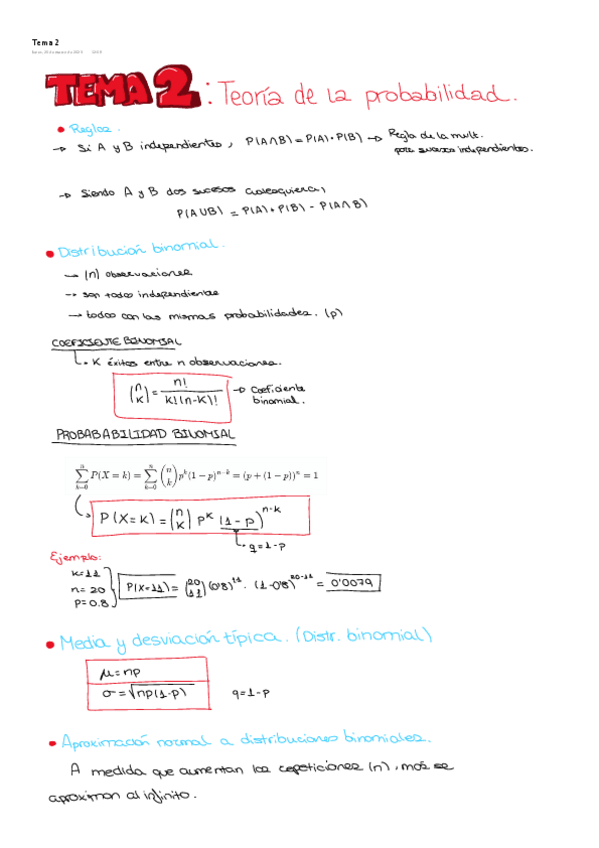 Tema 2
TEMA 2: Teoría de la probabilidad.
• Reglas.
→ Si A y B independientes, P(A∩B) = P(A)·P(B) → Regla de la mult.
para sucesos independientes.
→ Siendo A y B dos sucesos cualesquiera,
P(A∪B) = P(A) + P(B) - P(A∩B)
• Distribución binomial.
→ (n) observaciones
→ son todos independientes
→ todos con las mismas probabilidades. (p)
COEFICIENTE BINOMIAL
K éxitos entre n observaciones.
(n K) = n! / K!(n-K)! → Coeficiente
binomial.
PROBABABILIDAD BINOMIAL
∑_{k=0}^{n} P(X = k) = ∑_{k=0}^{n} (n k) p^k (1 − p)^{n−k} = (p + (1 − p))^n = 1
P(X=K) = (n K) p^K (1-p)^{n-K}
q=1-p
Ejemplo:
K=11
n=20
p=0.8
P(X=11) = (20 11) (0'8)^11 · (1-0'8)^{20-11} = 0'0079
• Media y desviación típica. (Distr. binomial)
μ=np
σ=√np(1-p) q=1-p
• Aproximación normal a distribuciones binomiales.
A medida que aumentan las repeticiones (n), más se
aproximan al infinito.